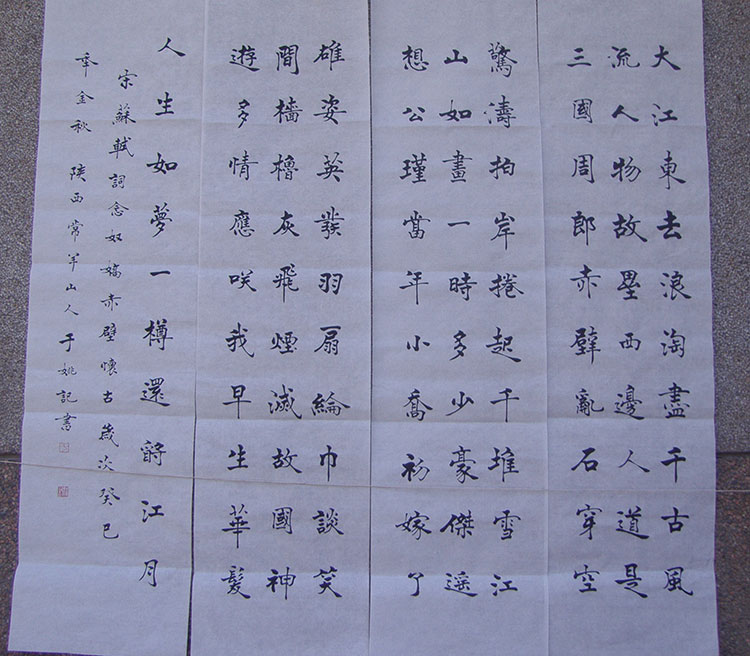 大江東去浪淘盡千古風
流人物故塁西邊人道是
三國周郎赤壁亂石穿空
驚濤拍岸捲起千堆雪江
山如畫一時多少豪傑遥
想公瑾當年小喬初嫁了
雄姿英發羽扇綸巾談笑
間檣櫓灰飛煙滅故國神
遊多情應咲我早生華髮
人生如夢一樽還酹江月
宋蘇軾詞念奴嬌赤壁懷古歲次癸巳
年金秋陝西常羊山人于姚記書